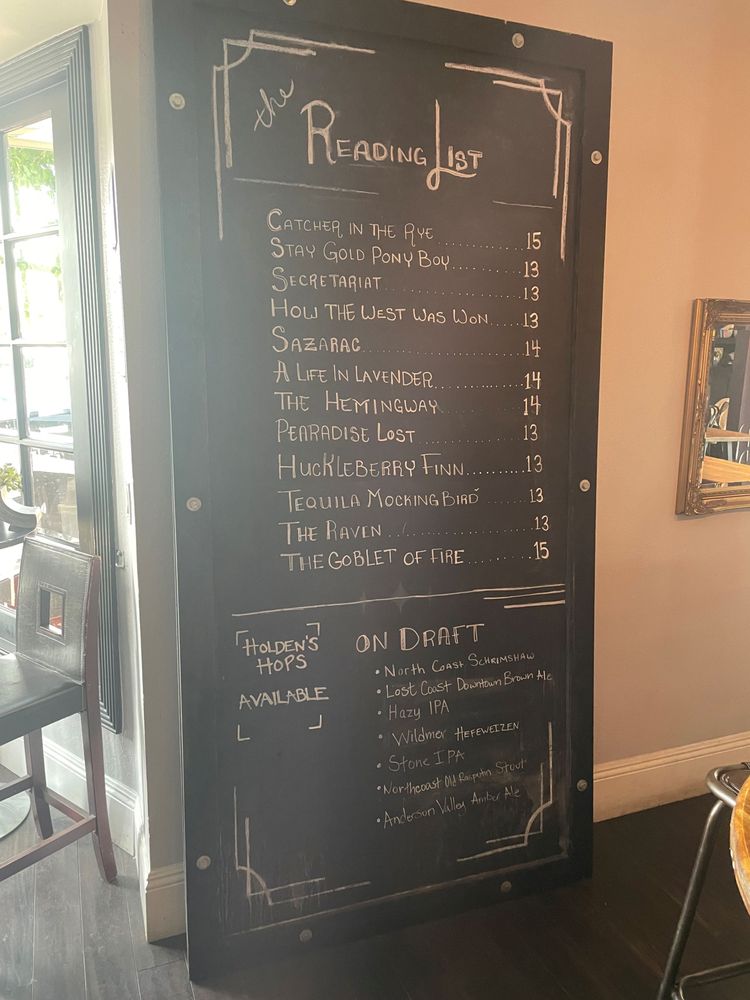 the
READING LIST
CATCHER IN THE RYE ............ 15
STAY GOLD PONY BOY .......... 13
SECRETARIAT .................. 13
HOW THE WEST WAS WON ..... 13
SAZARAC ..................... 14
A LIFE IN LAVENDER ............ 14
THE HEMINGWAY ............ 14
PEARADISE LOST .............. 13
HUCKLEBERRY FINN ......... 13
TEQUILA MOCKING BIRD ....... 13
THE RAVEN .................. 13
THE GOBLET OF FIRE .......... 15
HOLDEN'S
HOPS
AVAILABLE
ON DRAFT
• North Coast SCHRIMSHAW
• Lost Coast Downtown Brown Ale
• Hazy IPA
• Wildmer HEFEWEIZEN
• Stone IPA
• Northcoast Old Rasputin Stout
• Anderson Valley Amber Ale